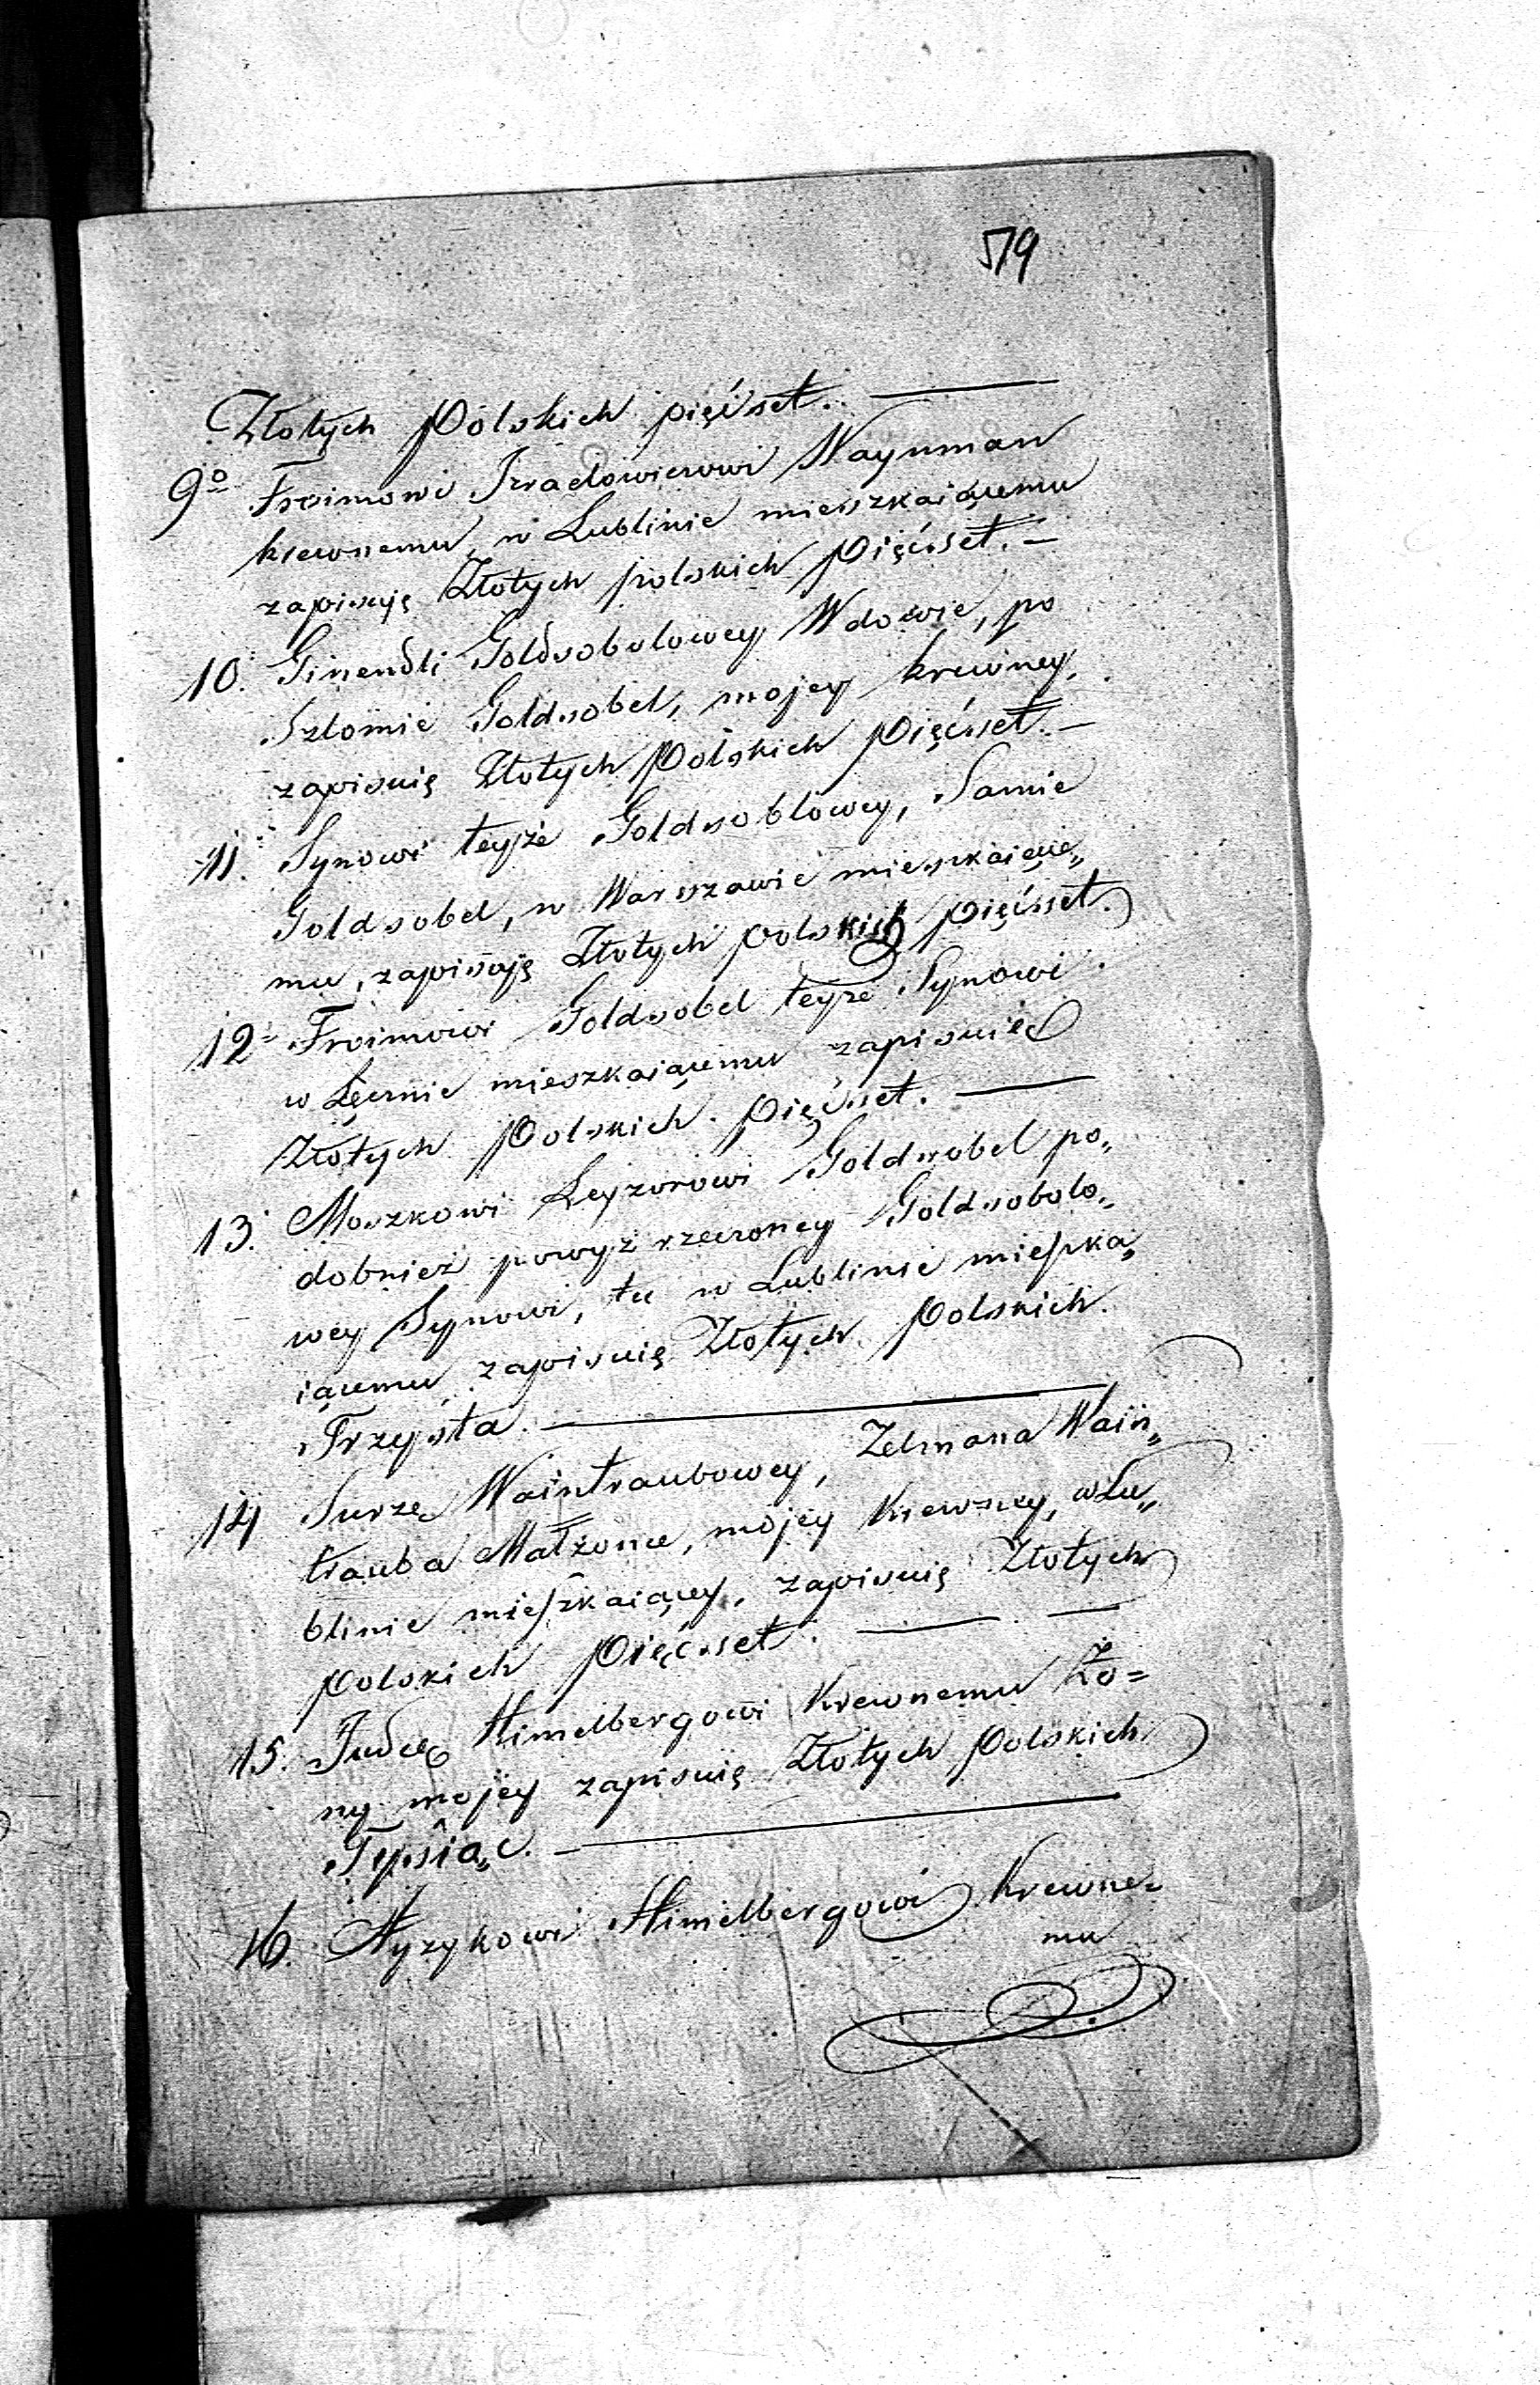 579
Złotych Polskich pięćset.
9o Froimowi Izraelowiczowi Waynman
krewnemu, w Lublinie mieszkaiącemu
zapisuję Złotych polskich Pięćset.
10. Ginendli Goldsobolowey Wdowie, po
Szlomie Goldsobel, mojey krewney,
zapisuię Złotych Polskich Pięćset.
11. Synowi teyże Goldsoblowey, Samie
Goldsobel, w Warszawie mieszkaiące„
mu, zapisuję Złotych polskich pięćset.
12 Froimowi Goldsobel teyże Synowi
w Łęcznie mieszkaiącemu zapisuię
Złotych Polskich Pięćset.
13. Moszkowi Leyzorowi Goldsobel po„
dobnież powyż rzeczoney Goldsobolo„
wey Synowi, tu w Lublinie mieszka„
iącemu zapisuię Złotych Polskich
Trzysta.
14 Surze Waintraubowey, Zelmana Wain„
trauba Małżonce, mojey Krewney, w Lu„
blinie mieszkaiącey, zapisuię Złotych
Polskich Pięćset.
15. Judce Himelbergowi Krewnemu Żo=
ny mojey zapisuię Złotych Polskich
Tysiąc.
16. Ayzykowi Himelbergowi Krewne=
mu